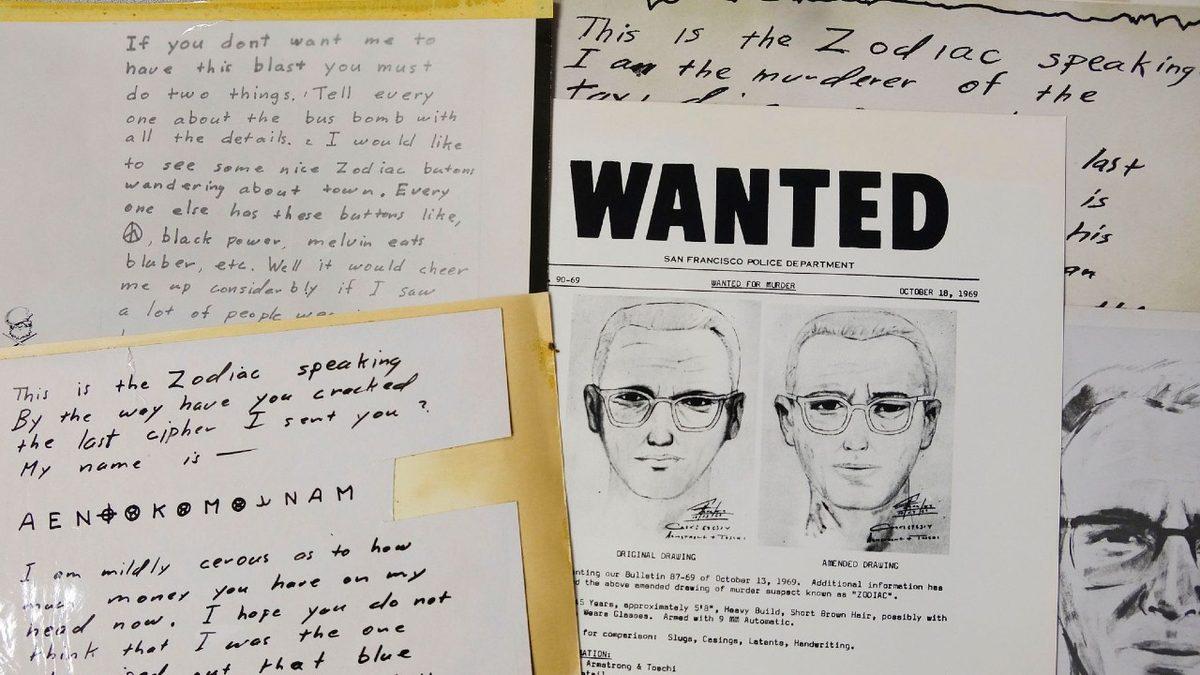 If you dont want me to
have this blast you must
do two things. Tell every
one about the bus bomb with
all the details. I would like
to see some nice Zodiac butons
wandering about town. Every
one else has these buttons like,
☮, black power, melvin eats
bluber, etc. Well it would cheer
me up considerbly if I saw
a lot of people
This is the Zodiac speaking
By the way have you cracked
the last cipher I sent you?
My name is —
AEN⌖⊗K⊗M⊗⅃NAM
I am mildly cerous as to how
much money you have on my
head now. I hope you do not
think that I was the one
that blue
This is the Zodiac speaking
I am the murderer of the
last
is
his
WANTED
SAN FRANCISCO POLICE DEPARTMENT
90-69 WANTED FOR MURDER OCTOBER 18, 1969
ORIGINAL DRAWING AMENDED DRAWING
our Bulletin 87-69 of October 13, 1969. Additional information has
the above amended drawing of murder suspect known as "ZODIAC".
Years, approximately 5'8", Heavy Build, Short Brown Hair, possibly with
Wears Glasses. Armed with 9 MM Automatic.
for comparison: Slugs, Casings, Latents, Handwriting.
Armstrong & Toschi